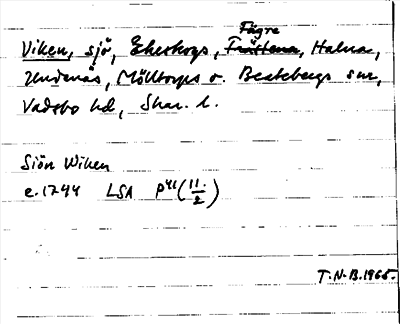 Fägre
Viken, sjö, Ekeskogs, Fröttena, Halna,
Undenäs, Mölltorps o. Beatebergs snr,
Vadsbo hd, Skar. l.
Siön Wiken
c. 1744 LSA P41 (11/2)
T.N.B. 1965.